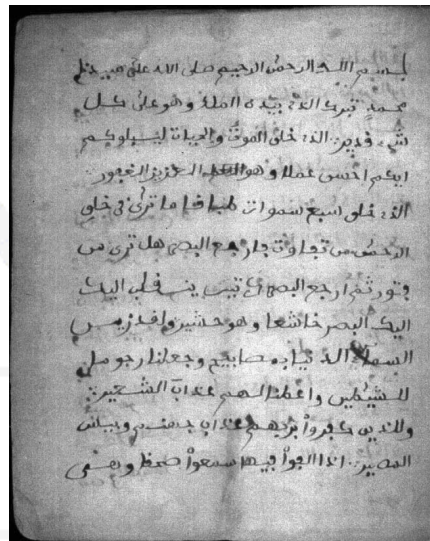 بسم الله الرحمن الرحيم صلى الله على
محمد تبرك الذي بيده الملك وهو على كل
شيء قدير الذي خلق الموت والحيات ليبلوكم
ايكم احسن عملا وهو العزيز الغفور
الذي خلق سبع سموات طباقا ما ترى في خلق
الرحمن من تفاوت فارجع البصر هل ترى من
فتور ثم ارجع البصر ينقلب اليك
اليك البصر خاشعا وهو حشير ولقد زين
السماء الدنيا بمصابيح وجعلنا رجوما
للشيطين لهم عذاب الشعير
وللذين كفروا بربهم عذاب جهنم وبيش
المصير اذا القوا فيها سمعوا